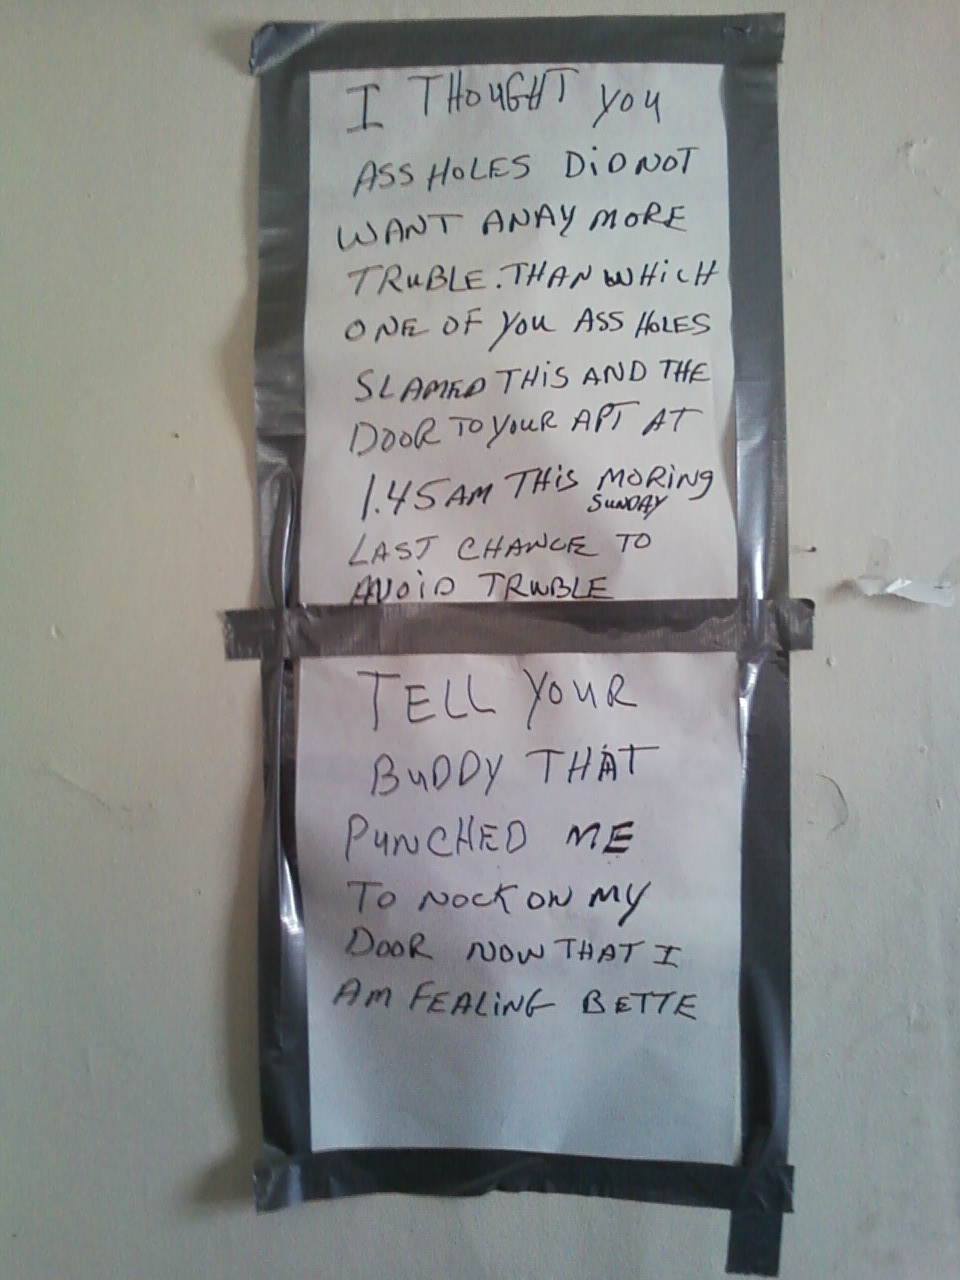 I THOUGHT YOU
ASS HOLES DID NOT
WANT ANAY MORE
TRUBLE. THAN WHICH
ONE OF YOU ASS HOLES
SLAMED THIS AND THE
DOOR TO YOUR APT AT
1.45 AM THIS MORING
SUNDAY
LAST CHANCE TO
AVOID TRUBLE
TELL YOUR
BUDDY THAT
PUNCHED ME
TO NOCK ON MY
DOOR NOW THAT I
AM FEALING BETTE